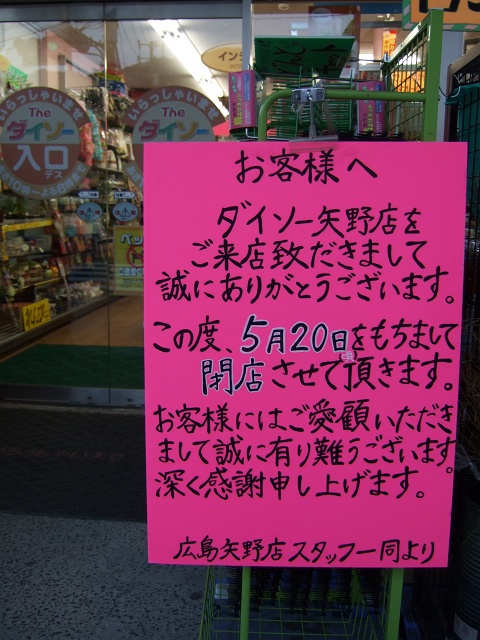 いらっしゃいませ
The
ダイソー
入口
デス
いらっしゃいませ
The
ダイソー
お客様へ
ダイソー矢野店を
ご来店致だきまして
誠にありがとうございます。
この度、5月20日をもちまして
頃
閉店させて頂きます。
お客様にはご愛顧いただき
まして誠に有り難うございます。
深く感謝申し上げます。
広島矢野店スタッフ一同より